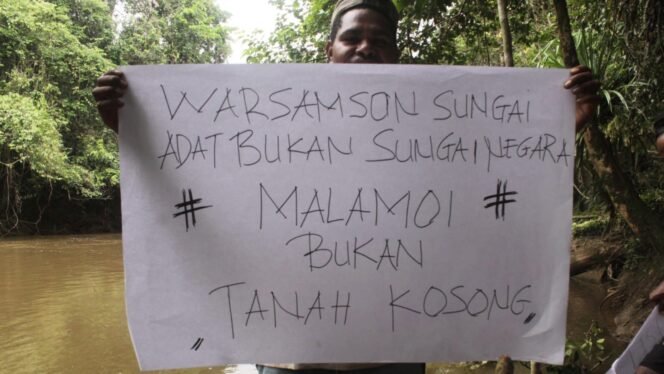 WARSAMSON SUNGAI
ADAT BUKAN SUNGAI NEGARA
# MALAMOI #
BUKAN
TANAH KOSONG "
"